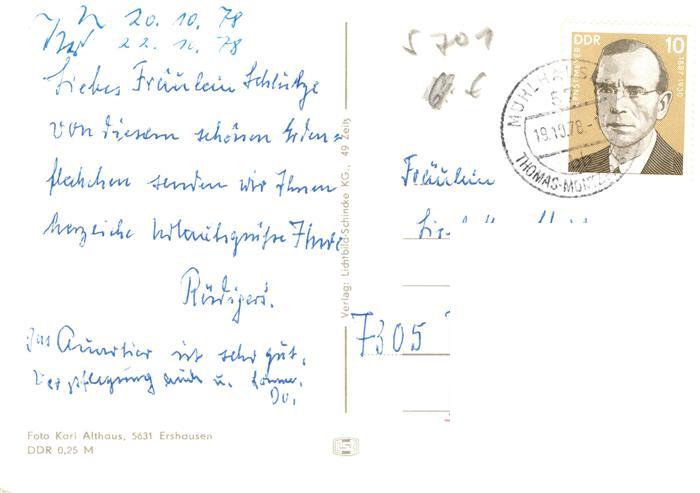 20.10.78
22.10.78
Liebes Fräulein Schlützge
von diesem schönen Erden=
fleckchen senden wir Ihnen
herzliche Urlaubsgrüße Ihre
Rüdigers.
Das Quartier ist sehr gut,
Verpflegung auch u.
Verlag: Lichtbild-Schincke KG., 49 Zeitz
Foto Karl Althaus, 5631 Ershausen
DDR 0,25 M
5701
DDR
10
1887-1930
MÜHLHAUSEN
57
19.10.78
THOMAS-MÜNTZER
Fräulein
7305